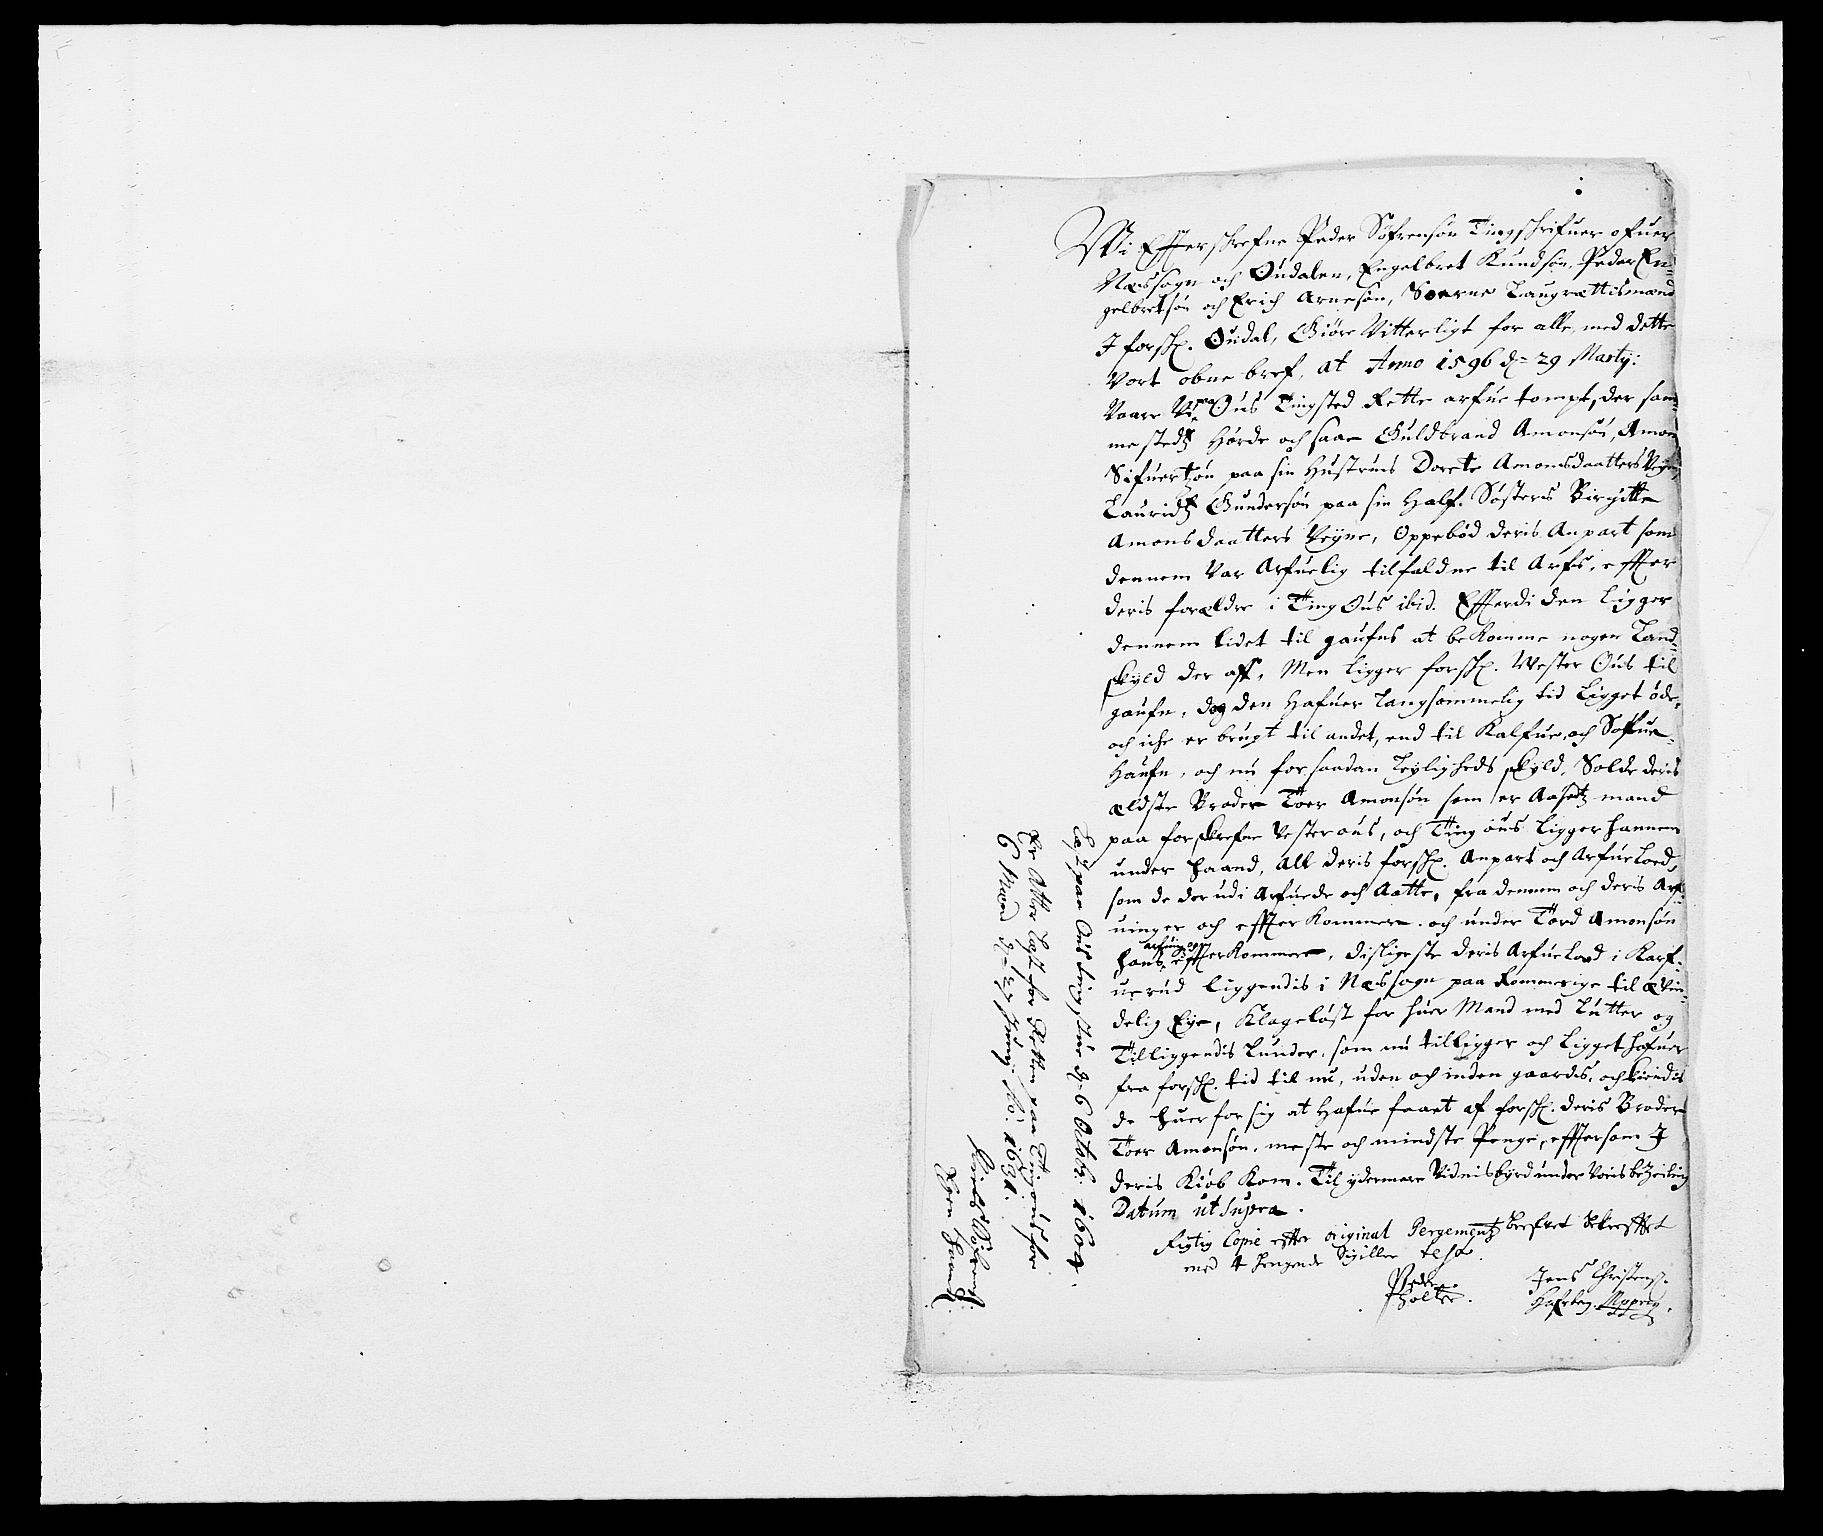 Wi Effterschrefne Peder Söfrensön Tingschrifuer ofuer
Næssogn och Oudalen, Engelbret Knudsön, Peder En-
gelbretsön och Erich Arnesön, Soerne Laugrættismænd
I forsch. Oudal, Giöre Vitterligt for alle, med dette
Vort obne bref, at Anno 1596 d. 29 Marty:
Vaare Vi paa Ous Tingsted Rette arfue tompt, der sam-
mestedtz Hörde och saae Guldbrand Amonsön, Amon
Sifuertzön paa sin Hustrues Dorete Amonsdaatters Vegne,
Lauridtz Gundersön paa sin Half. Söster Birgitte
Amonsdaatters Vegne, Oppebød deris Anpart som
dennem Var Arfuelig tilfaldne til Arfs, effter
deris forældre i Ting Ous ibid. Efferdi den Ligger
dennem lidet til gaufns at bekomme nogen Land-
skyld der aff, Men ligger forsch. Vester Ous til
gaufn, dog den Hafuer langsommelig tid Ligget öde,
och iche er brugt til andet, end til Kalfue, och Soffue-
Haufn, och nu for saadan Leyligheds skyld, Solde deris
ældste Broder Toer Amonsön som er Aasedtz mand
paa forskrefne Vesterous, och Ting ous Ligger hannem
under haand, All deris forsch. Anpart och Arfue Lod,
som de der udi Arfuede och Aatte, fra dennem och deris Arf-
uinger och effterkommere. och under Tord Amonsön
hans arfuinger effterkommere, disligeste deris Arfue Lod i Karf-
uerud liggendis i Næssogn paa Rommerige til ævin-
delig Eye, Klagelöst for huer Mand med Lutter og
Tilliggendis Lunder, som nu tilligger och Ligget hafuer
fra forsch. tid til nu, uden och inden gaards, och kiendis
de huer for sig at Hafue faaet af forsch. deris Broder
Toer Amonsön, meste och mindste Penge, effttersom I
deris Kiöb Kom. Til ydermere Vidnisbyrd under Voris betzeiling
Datum ut Supra.
Rigtig Copie effter original Pergementz brefuet bekreffter
med 4 hengende Sigiller
Peder Holter.
Jens Christens.
Læst paa Ous ting stue d. 6 Octobr. 1604.
Er Atter Læst for Retten paa Tingous for
6 Mænd d. 27 Juny. Ao: 1631.
Egen Haand.